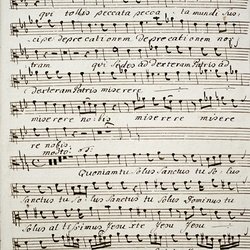 qui tollis peccata pecca ta mundi sus
cipe deprecationem deprecationem nos
tram qui sedes ad dexteram Patris ad
dexteram Patris miserere
miserere nobis miserere mise
re nobis.
Quoniam tu solus Sanctus tu so lus
Sanctus tu so lus Sanctus tu solus Dominus tu
Solus altissimus Jesu xte Jesu Jesu